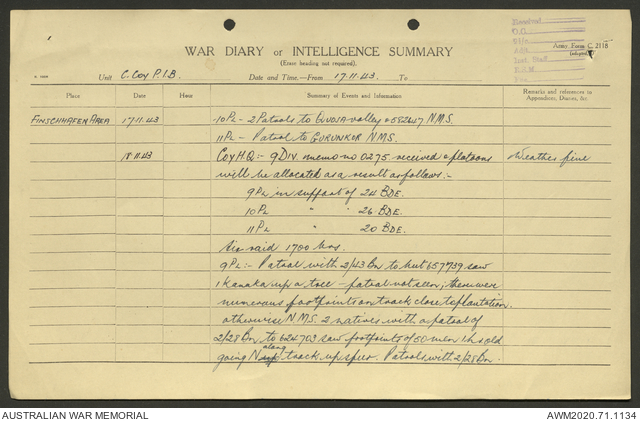 Received
O.C.
Adjt.
Army Form C. 2118
WAR DIARY or INTELLIGENCE SUMMARY
(Erase heading not required).
Unit C. Coy P.I.B. Date and Time—From 17.11.43. To
Place Date Hour Summary of Events and Information Remarks and references to Appendices, Diaries, &c.
FINSCHHAFEN AREA 17.11.43 10 PL - 2 Patrols to QUOJA valley & 582647 N.M.S.
11 PL - Patrol to GURUNKOR N.M.S.
18.11.43 COY H.Q:- 9 DIV. memo no 0275 received & platoons Weather fine
will be allocated as a result as follows:-
9 PL in support of 24 BDE.
10 PL " " 26 BDE.
11 PL " 20 BDE.
Air raid 1700 hrs.
9 PL:- Patrol with 2/43 Bn to hut 657739 saw
1 kanaka up a tree - patrol not seen; there were
numerous footprints on track close to plantation.
otherwise N.M.S. 2 natives with a patrol of
2/28 Bn to 624703 saw footprints of 50 men 1 hr old
going N along track up spur. Patrols with 2/28 Bn.
AUSTRALIAN WAR MEMORIAL AWM2020.71.1134